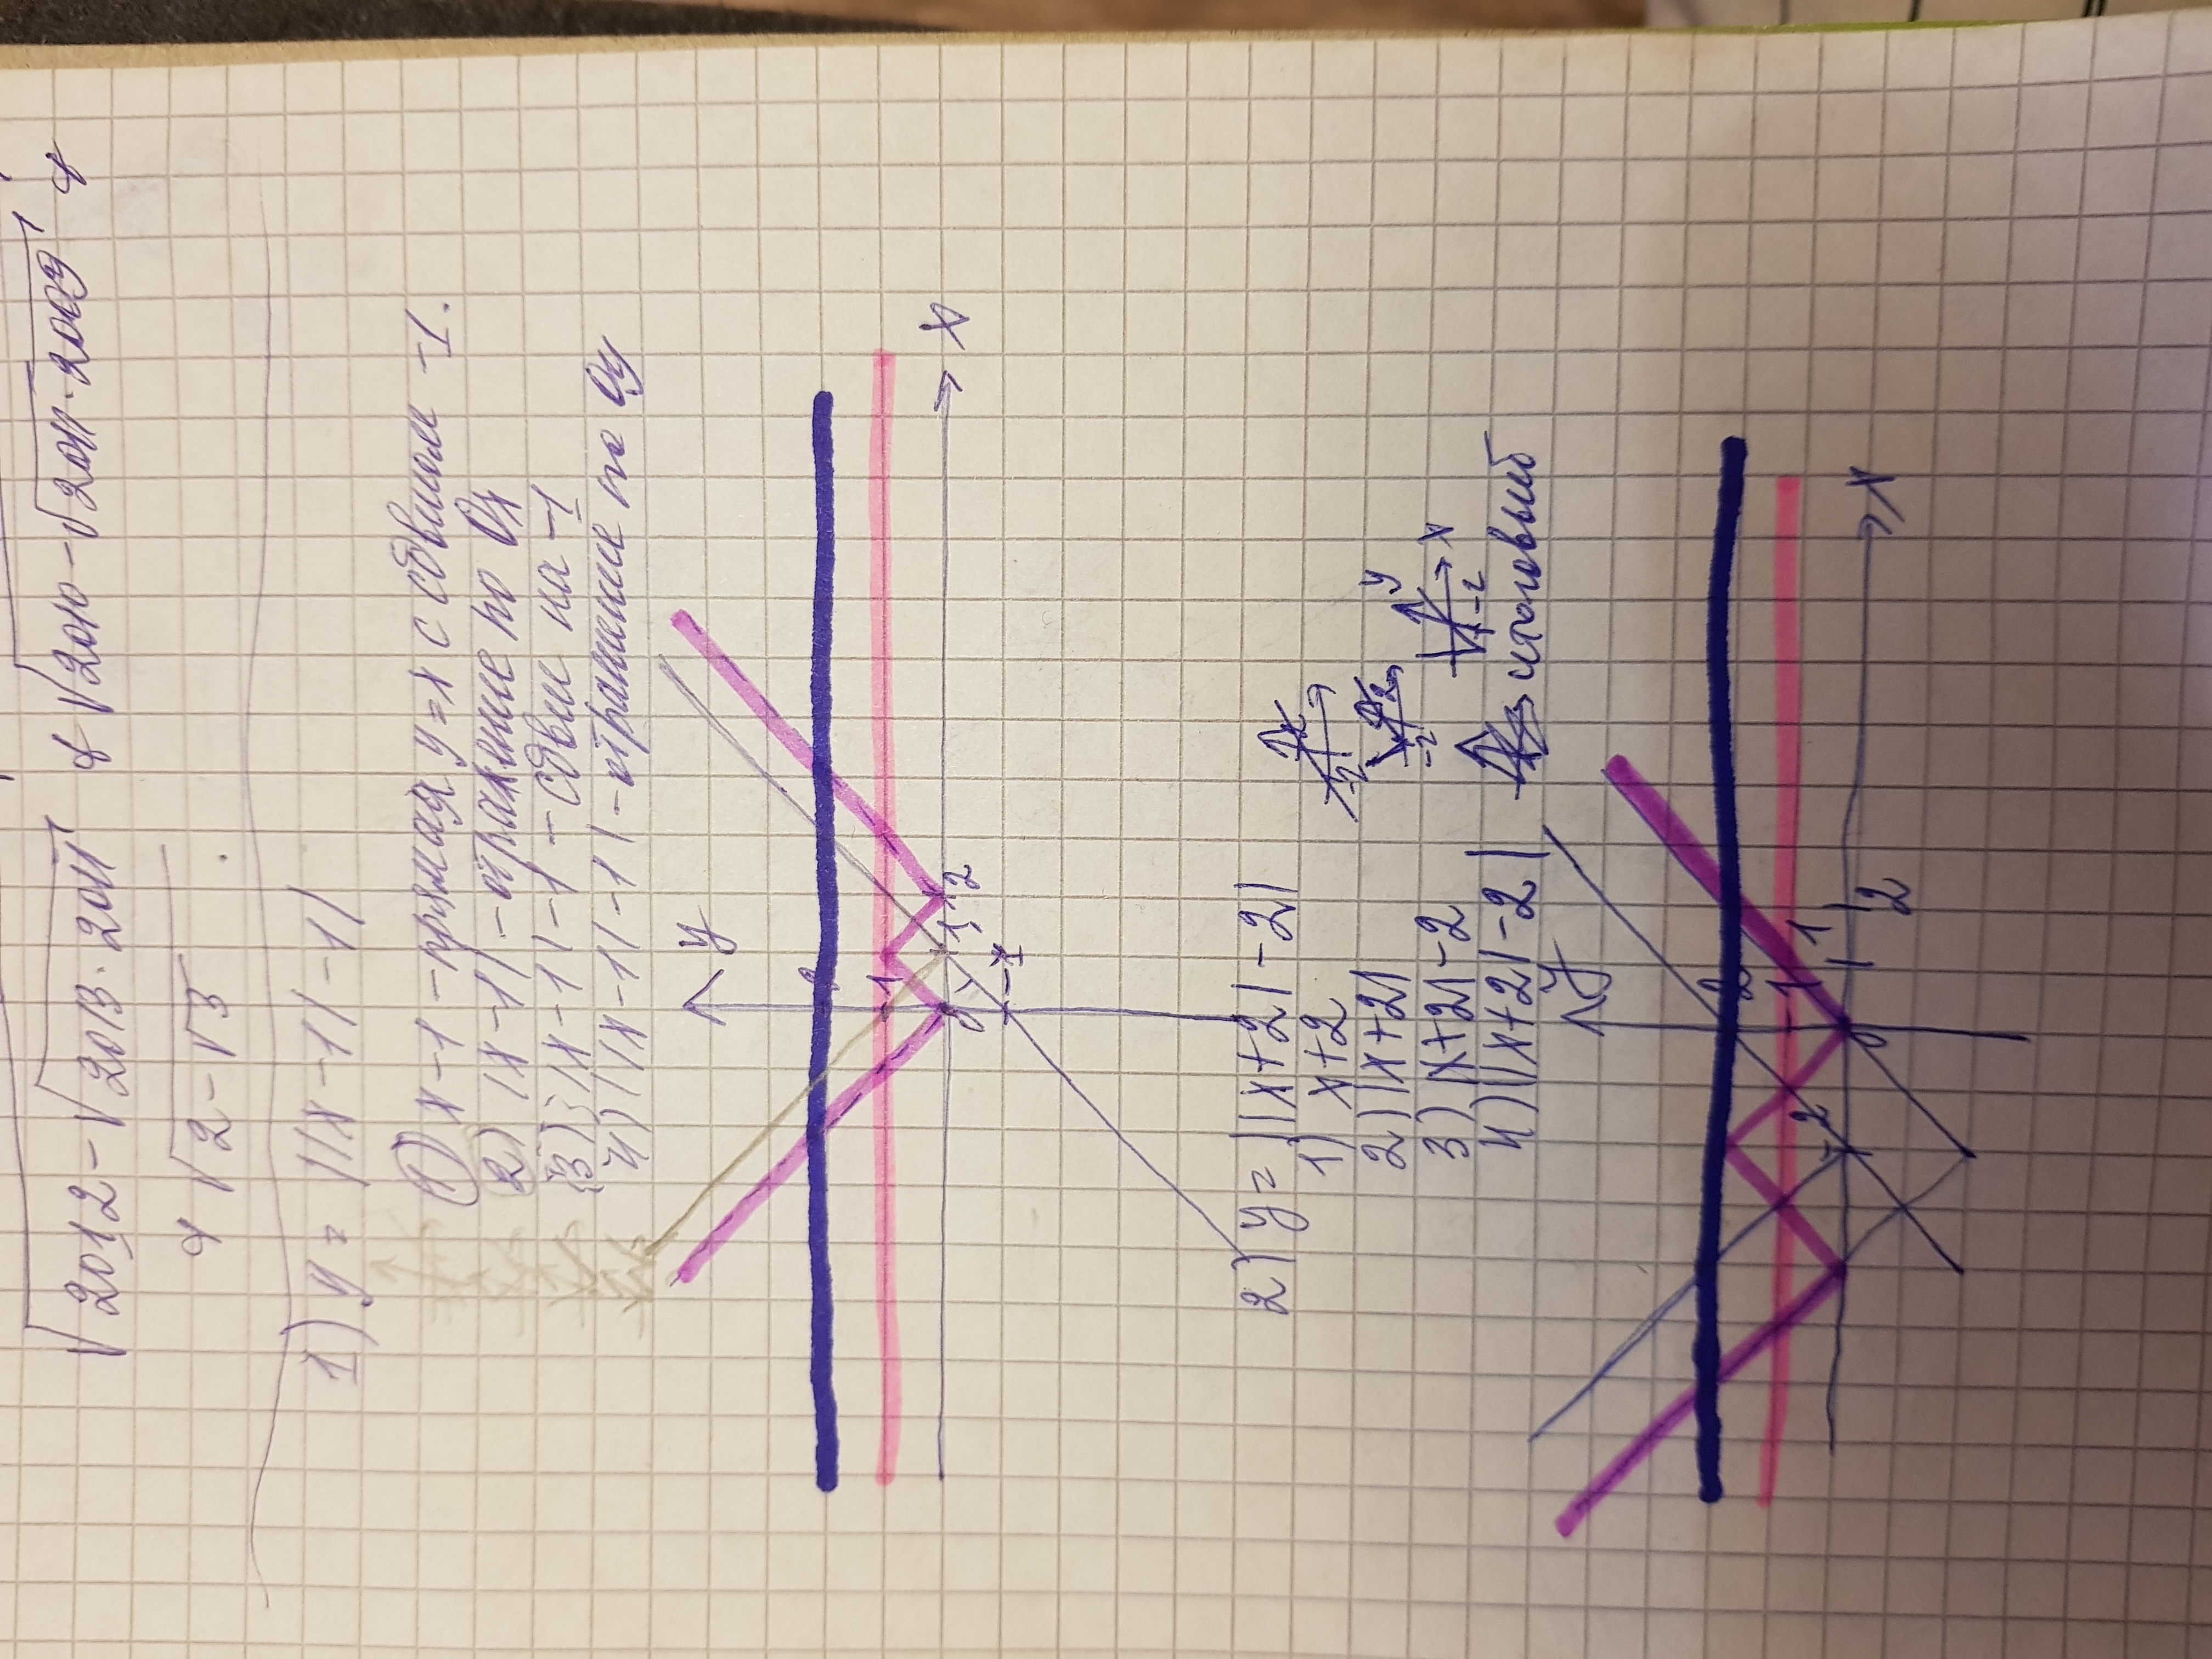 √2012 - √2013·2011 & √2010 - √2011·2009 &
& √2 - √3 .
1) y = ||x-1|-1|
1) x-1 - прямая y=x с сдвигом -1.
2) |x-1| - отражение по Ox
3) |x-1|-1 - сдвиг на -1
4) ||x-1|-1| - отражение по Oy
y
2
1
0
1
2
x
-1
2) y = ||x+2|-2|
1) x+2
-2
2) |x+2|
-2
2
y
3) |x+2|-2
-2
x
4) ||x+2|-2|
итоговый
y
2
1
1
-2
0
1
2
x